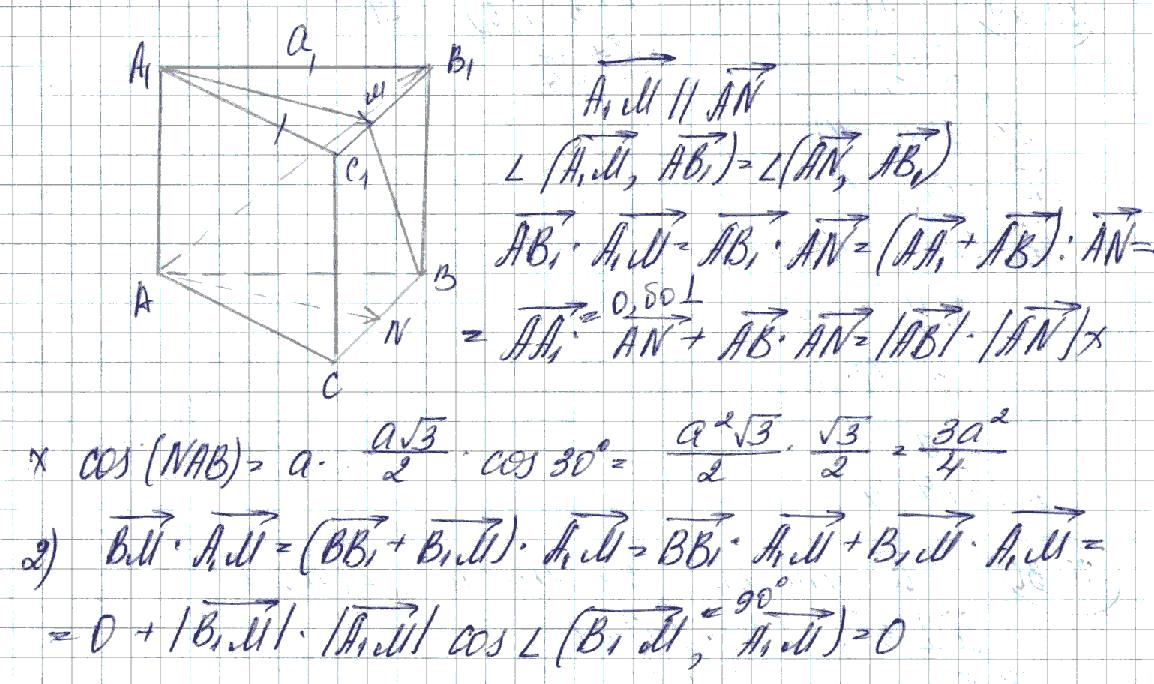 A₁ a₁ B₁
M
C₁
A B
N
C
A₁M || AN
∠(A₁M, AB₁) = ∠(AN, AB₁)
AB₁ · A₁M = AB₁ · AN = (AA₁ + AB) · AN =
= 0, ⊥
= AA₁ · AN + AB · AN = |AB| · |AN| ×
× cos(NAB) = a · a√3/2 · cos 30° = a²√3/2 · √3/2 = 3a²/4
2) BM · A₁M = (BB₁ + B₁M) · A₁M = BB₁ · A₁M + B₁M · A₁M =
= 90°
= 0 + |B₁M| · |A₁M| cos ∠(B₁M; A₁M) = 0